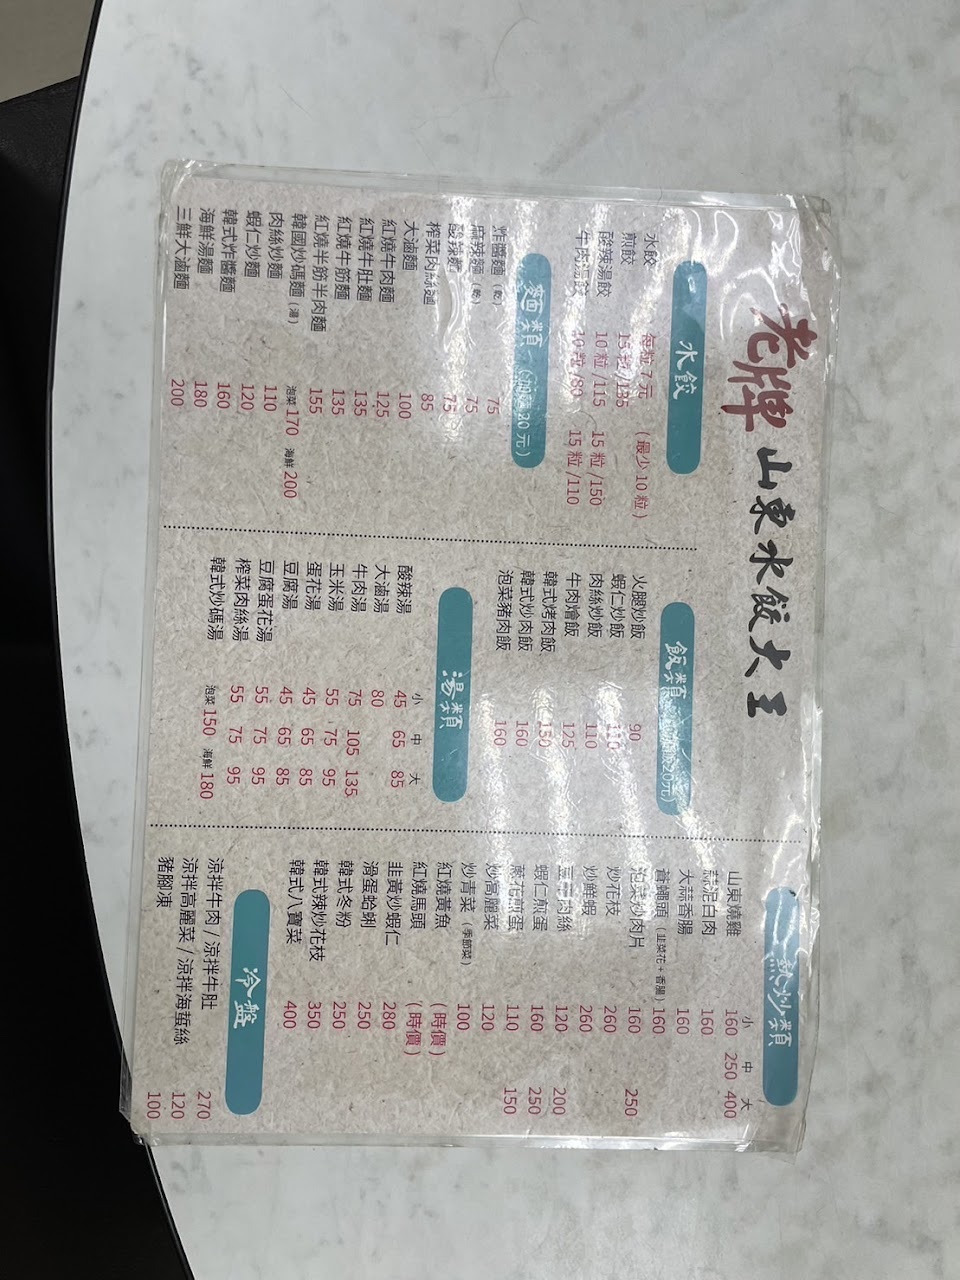 老牌山東水餃大王
水餃
水餃 每粒 7 元 (最少 10 粒)
煎餃 15 粒 /135
酸辣湯餃 10 粒 /115 15 粒 /150
牛肉湯餃 10 粒 /80 15 粒 /110
麵類 (加麵 20 元)
炸醬麵 (乾) 75
麻辣麵 (乾) 75
酸辣麵 75
榨菜肉絲麵 85
大滷麵 100
紅燒牛肉麵 125
紅燒牛肚麵 135
紅燒牛筋麵 135
紅燒半筋半肉麵 155
韓國炒碼麵 (湯) 泡菜 170 海鮮 200
肉絲炒麵 110
蝦仁炒麵 120
韓式炸醬麵 160
海鮮湯麵 180
三鮮大滷麵 200
飯類 20元)
火腿炒飯 90
蝦仁炒飯 110
肉絲炒飯 110
牛肉燴飯 125
韓式烤肉飯 150
韓式炒肉飯 160
泡菜豬肉飯 160
湯類
小 中 大
酸辣湯 45 65 85
大滷湯 80
牛肉湯 75 105 135
玉米湯 55 75 95
蛋花湯 45 65 85
豆腐湯 45 65 85
豆腐蛋花湯 55 75 95
榨菜肉絲湯 55 75 95
韓式炒碼湯 泡菜 150 海鮮 180
熱炒類
小 中 大
山東燒雞 160 250 400
蒜泥白肉 160
大蒜香腸 160
蒼蠅頭 (韭菜花+香腸) 160
泡菜炒肉片 160 250
炒花枝 260
炒鮮蝦 260
豆干肉絲 120 200
蝦仁煎蛋 160 250
蔥花煎蛋 110 150
炒高麗菜 120
炒青菜 (季節菜) 100
紅燒黃魚 (時價)
紅燒馬頭 (時價)
韭黃炒蝦仁 280
滑蛋蛤蜊 250
韓式冬粉 250
韓式辣炒花枝 350
韓式八寶菜 400
冷盤
涼拌牛肉 / 涼拌牛肚 270
涼拌高麗菜 / 涼拌海蜇絲 120
豬腳凍 100